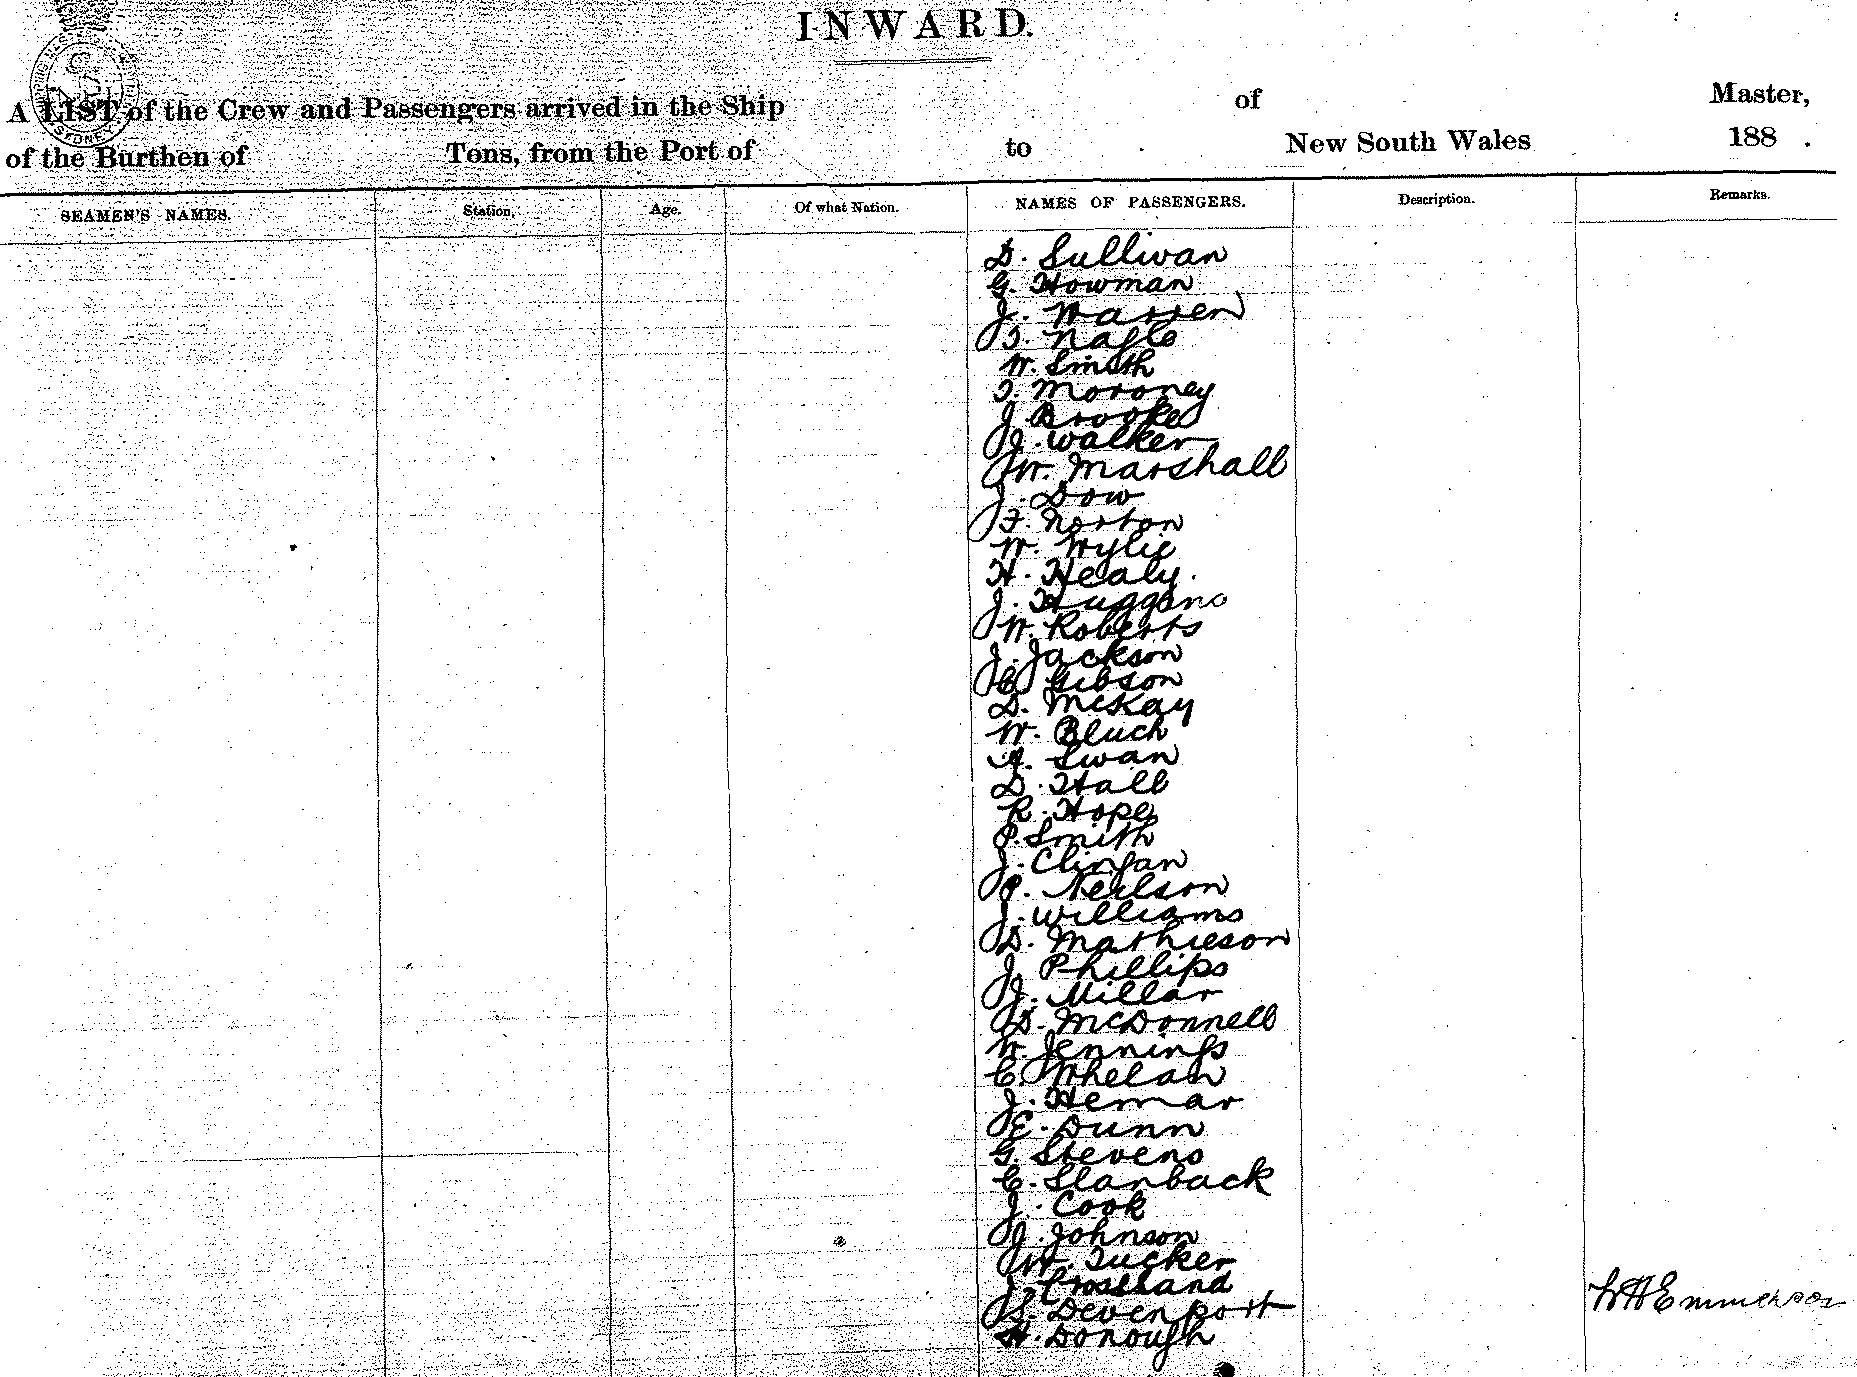 INWARD.
A LIST of the Crew and Passengers arrived in the Ship of Master,
of the Burthen of Tons, from the Port of to New South Wales 188 .
SEAMEN'S NAMES. Station. Age. Of what Nation. NAMES OF PASSENGERS. Description. Remarks.
D. Sullivan
G. Howman
J. Warren
T. Nagle
W. Smith
T. Moroney
J. Brooke
J. Walker
W. Marshall
J. Dow
F. Norton
W. Wylie
H. Healy.
J. Huggins
W. Roberts
J. Jackson
C. Gibson
D. McKay
W. Bluck
A. Swan
D. Hall
R. Hope
P. Smith
J. Clingan
P. Neilson
J. Williams
D. Mathieson
J. Phillips
J. Millar
D. McDonnell
W. Jennings
C. Whelan
J. Hemar
E. Dunn
G. Stevens
C. Slanback
J. Cook
J. Johnson
W. Tucker
J. Crossland
Devenport
H. Donough
WH Emmerson